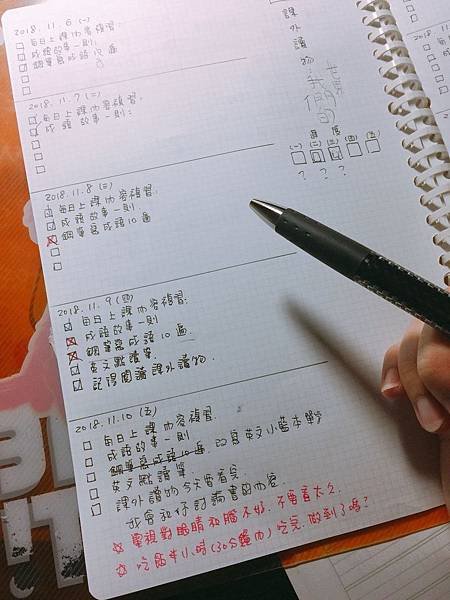 2018.11.6 (一)
每日上課內容複習.
成語故事一則.
鋼筆寫成語10遍
2018.11.7 (二)
每日上課內容複習.
成語故事一則.
2018.11.8 (三)
每日上課內容複習.
成語故事一則
鋼筆寫成語10遍
2018.11.9 (四)
每日上課內容複習.
成語故事一則
鋼筆寫成語10遍.
英文點讀筆.
記得閱讀課外讀物.
2018.11.10 (五)
每日上課內容複習.
成語故事一則.
鋼筆寫成語10遍.
英文小藍本
英文點讀筆
課外讀物今天要看完.
我會和你討論書的內容.
☆ 電視對眼睛和腦不好.不要看太久.
☆ 吃飯半小時(30分鐘內)吃完.做到了嗎?
課外讀物
我們的
進度
(一) (二) (三) (四) (五)
? ? ?